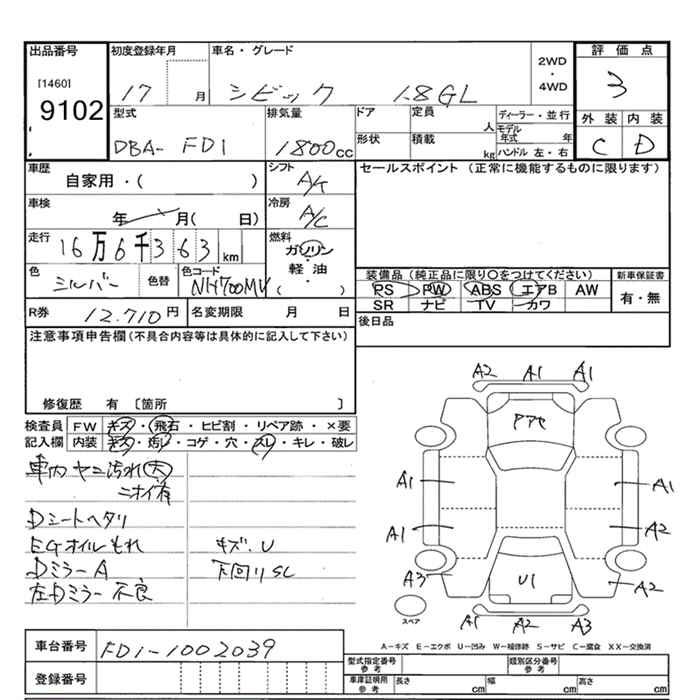 出品番号 初度登録年月 車名・グレード 2WD・4WD 評価点
[1460] 9102 17 月 シビック 1.8GL 3
型式 DBA- FD1 排気量 1800cc ドア 定員 人 ディーラー・並行
形状 積載 kg モデル年式 年 ハンドル 左・右
外装 内装
C D
車歴 自家用・( ) シフト A/T セールスポイント (正常に機能するものに限ります)
車検 年 月( 日) 冷房 A/C
走行 16万6千363km 燃料 ガソリン・軽油 ( )
色 シルバー 色替 色コード NH700MV
装備品 (純正品に限り○をつけてください) 新車保証書
PS PW ABS エアB AW 有・無
SR ナビ TV カワ
R券 12,710円 名変期限 月 日 後日品
注意事項申告欄(不具合内容等は具体的に記入して下さい)
修復歴 有 〔箇所 〕
検査員記入欄 FW キズ・飛石・ヒビ割・リペア跡・×要
内装 キズ・汚レ・コゲ・穴・スレ・キレ・破レ
車内ヤニ汚れ(大)
ニオイ有
Dシートヘタリ
EGオイルもれ キズ.U
Dミラー A 下回りSL
左Dミラー不良
A2 A1 A1
アアセ
A1 A1
A1 A2
A3 U1 A2
スペア A1 A2 A3
A-キズ E-エクボ U-凹み W-補修跡 S-サビ C-腐食 XX-交換済
車台番号 FD1-1002039
登録番号
型式指定番号 参考 類別区分番号 参考
車庫証明用 参考 長さ cm 幅 cm 高さ cm